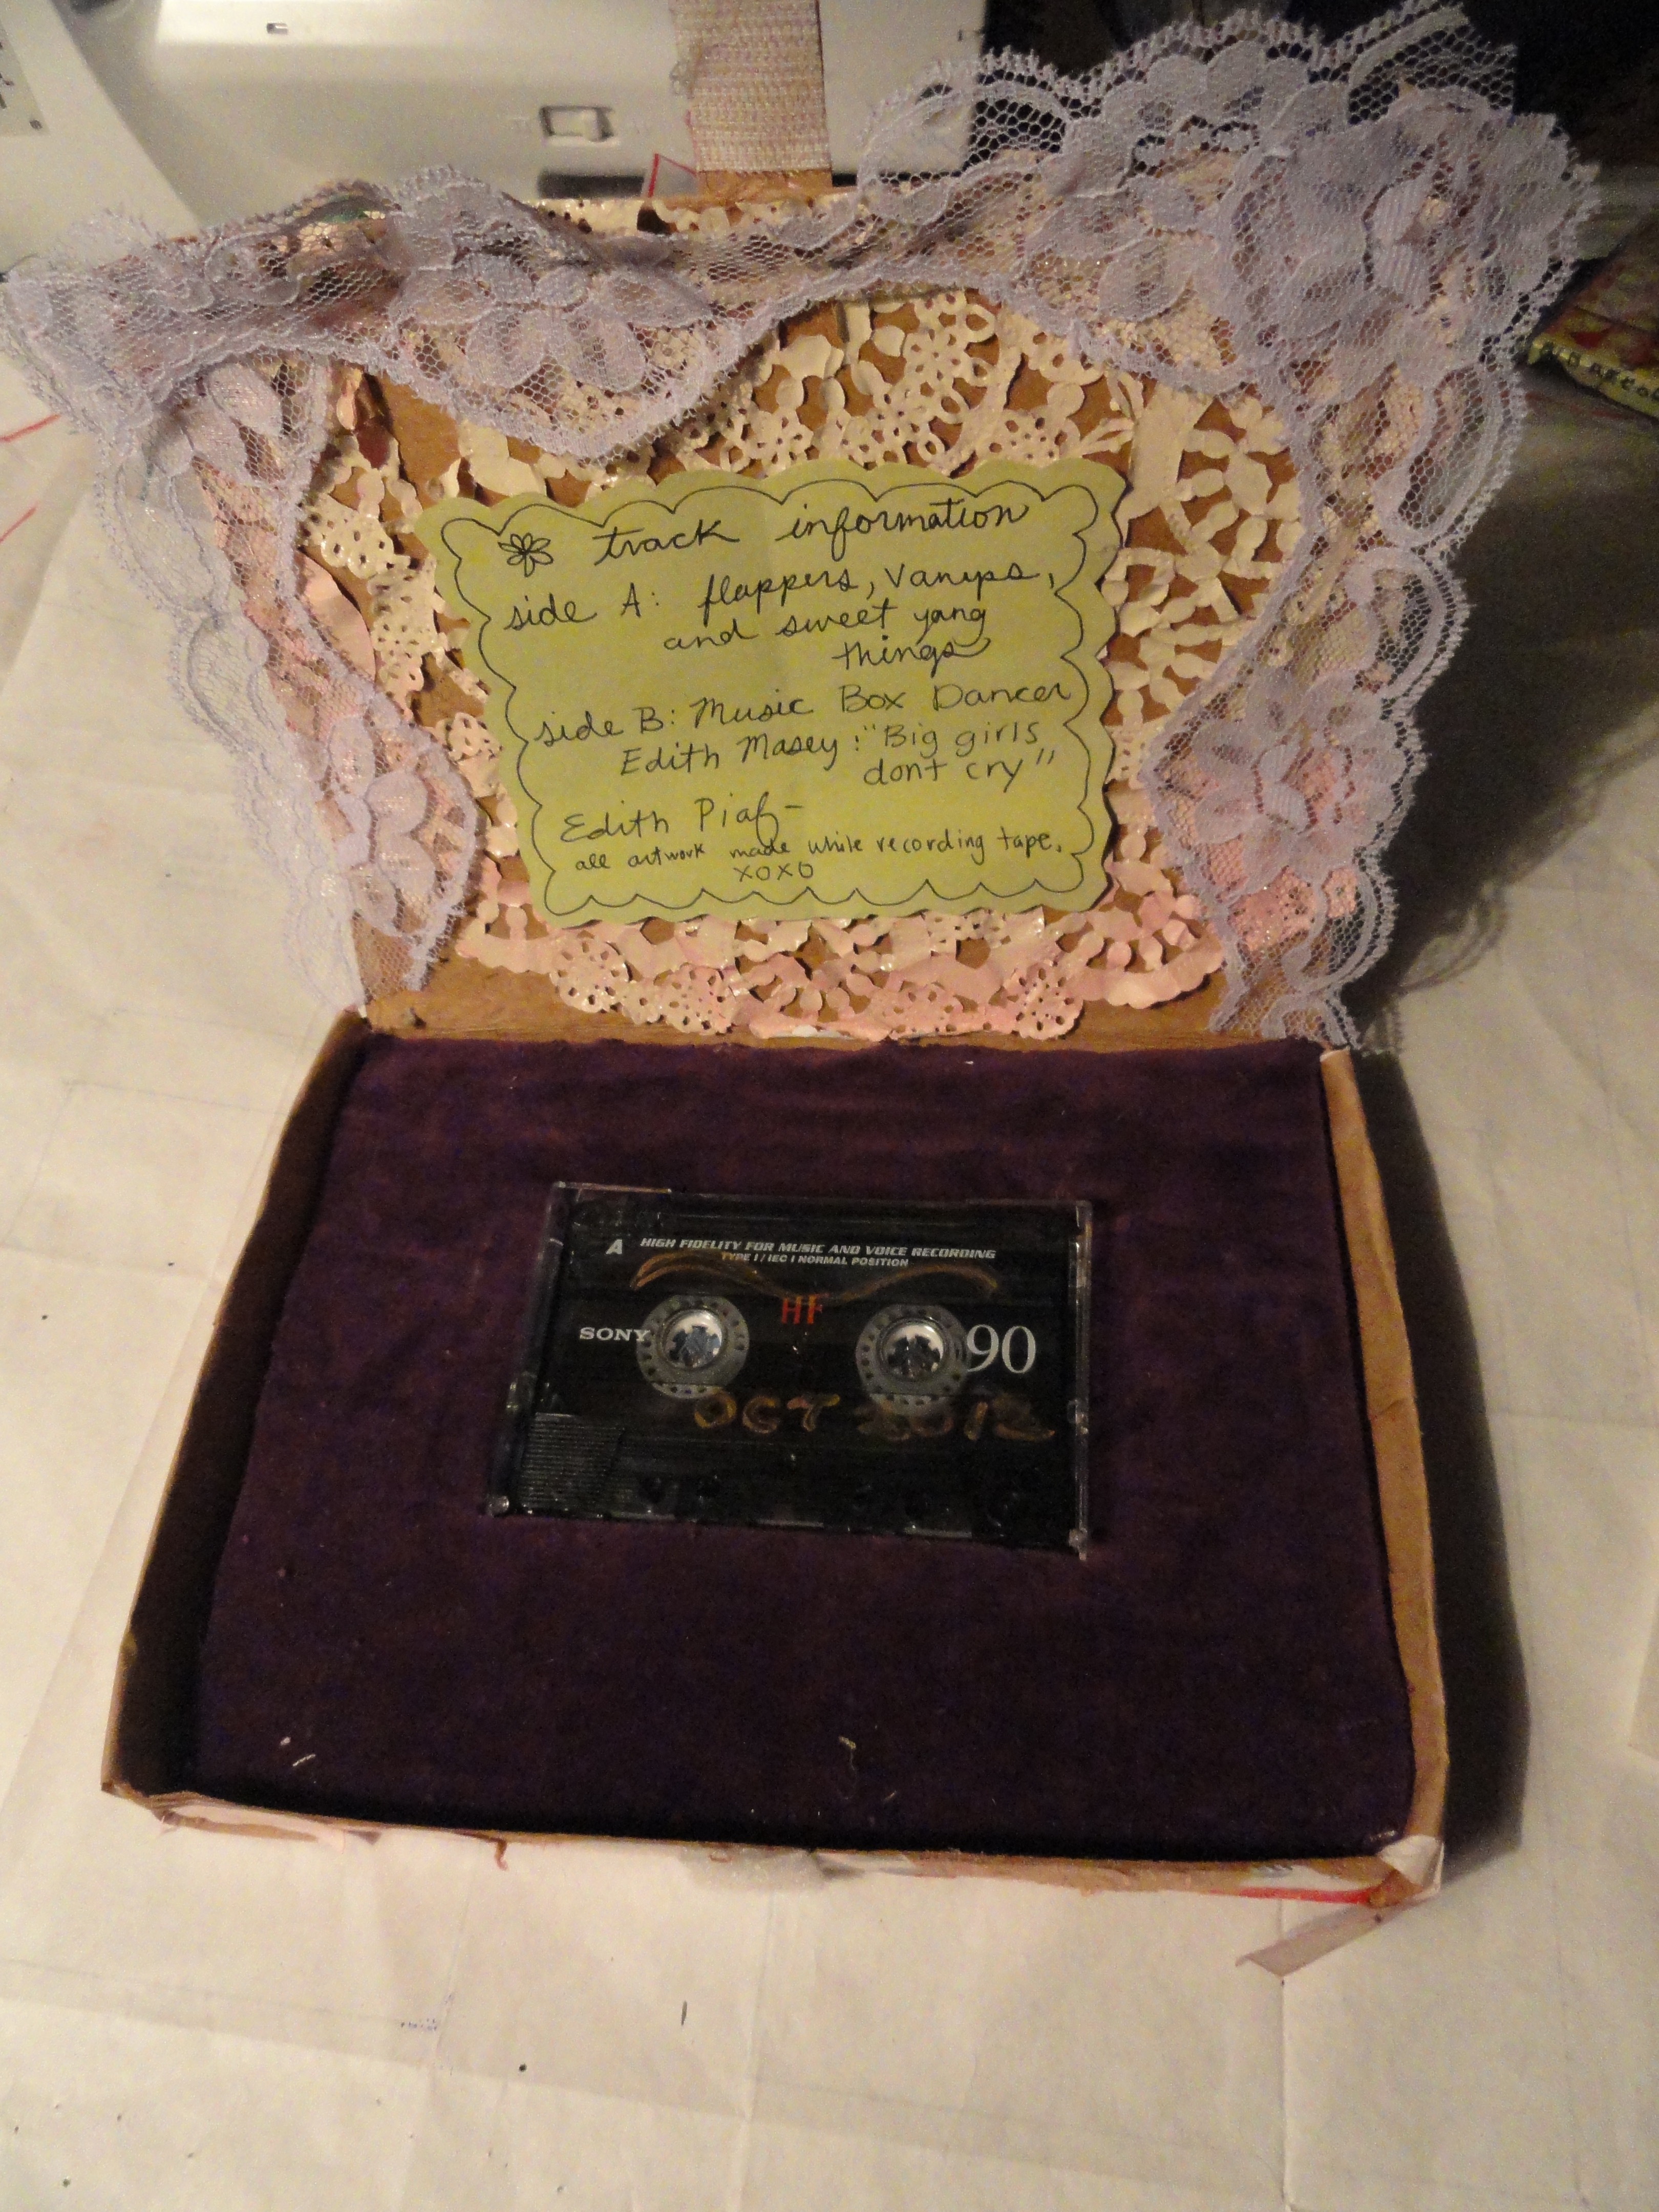 track information
side A: flappers, vamps,
and sweet yang
things
side B: Music Box Dancer
Edith Masey: "Big girls
dont cry"
Edith Piaf-
all artwork made while recording tape.
xoxo
A HIGH FIDELITY FOR MUSIC AND VOICE RECORDING
TYPE I / IEC I NORMAL POSITION
HF
SONY 90
OCT 2012